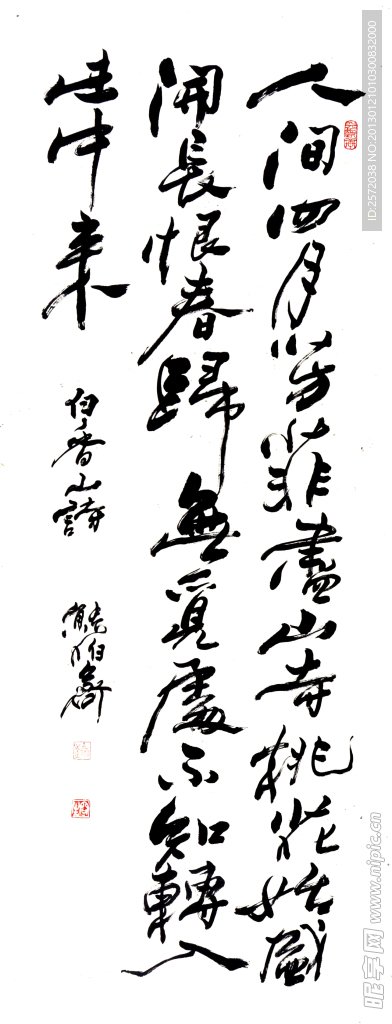 人間四月芳菲盡山寺桃花始盛
開長恨春歸無覓處不知轉入
此中来
白香山詩
熊伯齊
ID:2572038 NO:20130121010300832000
昵享网 www.nipic.cn